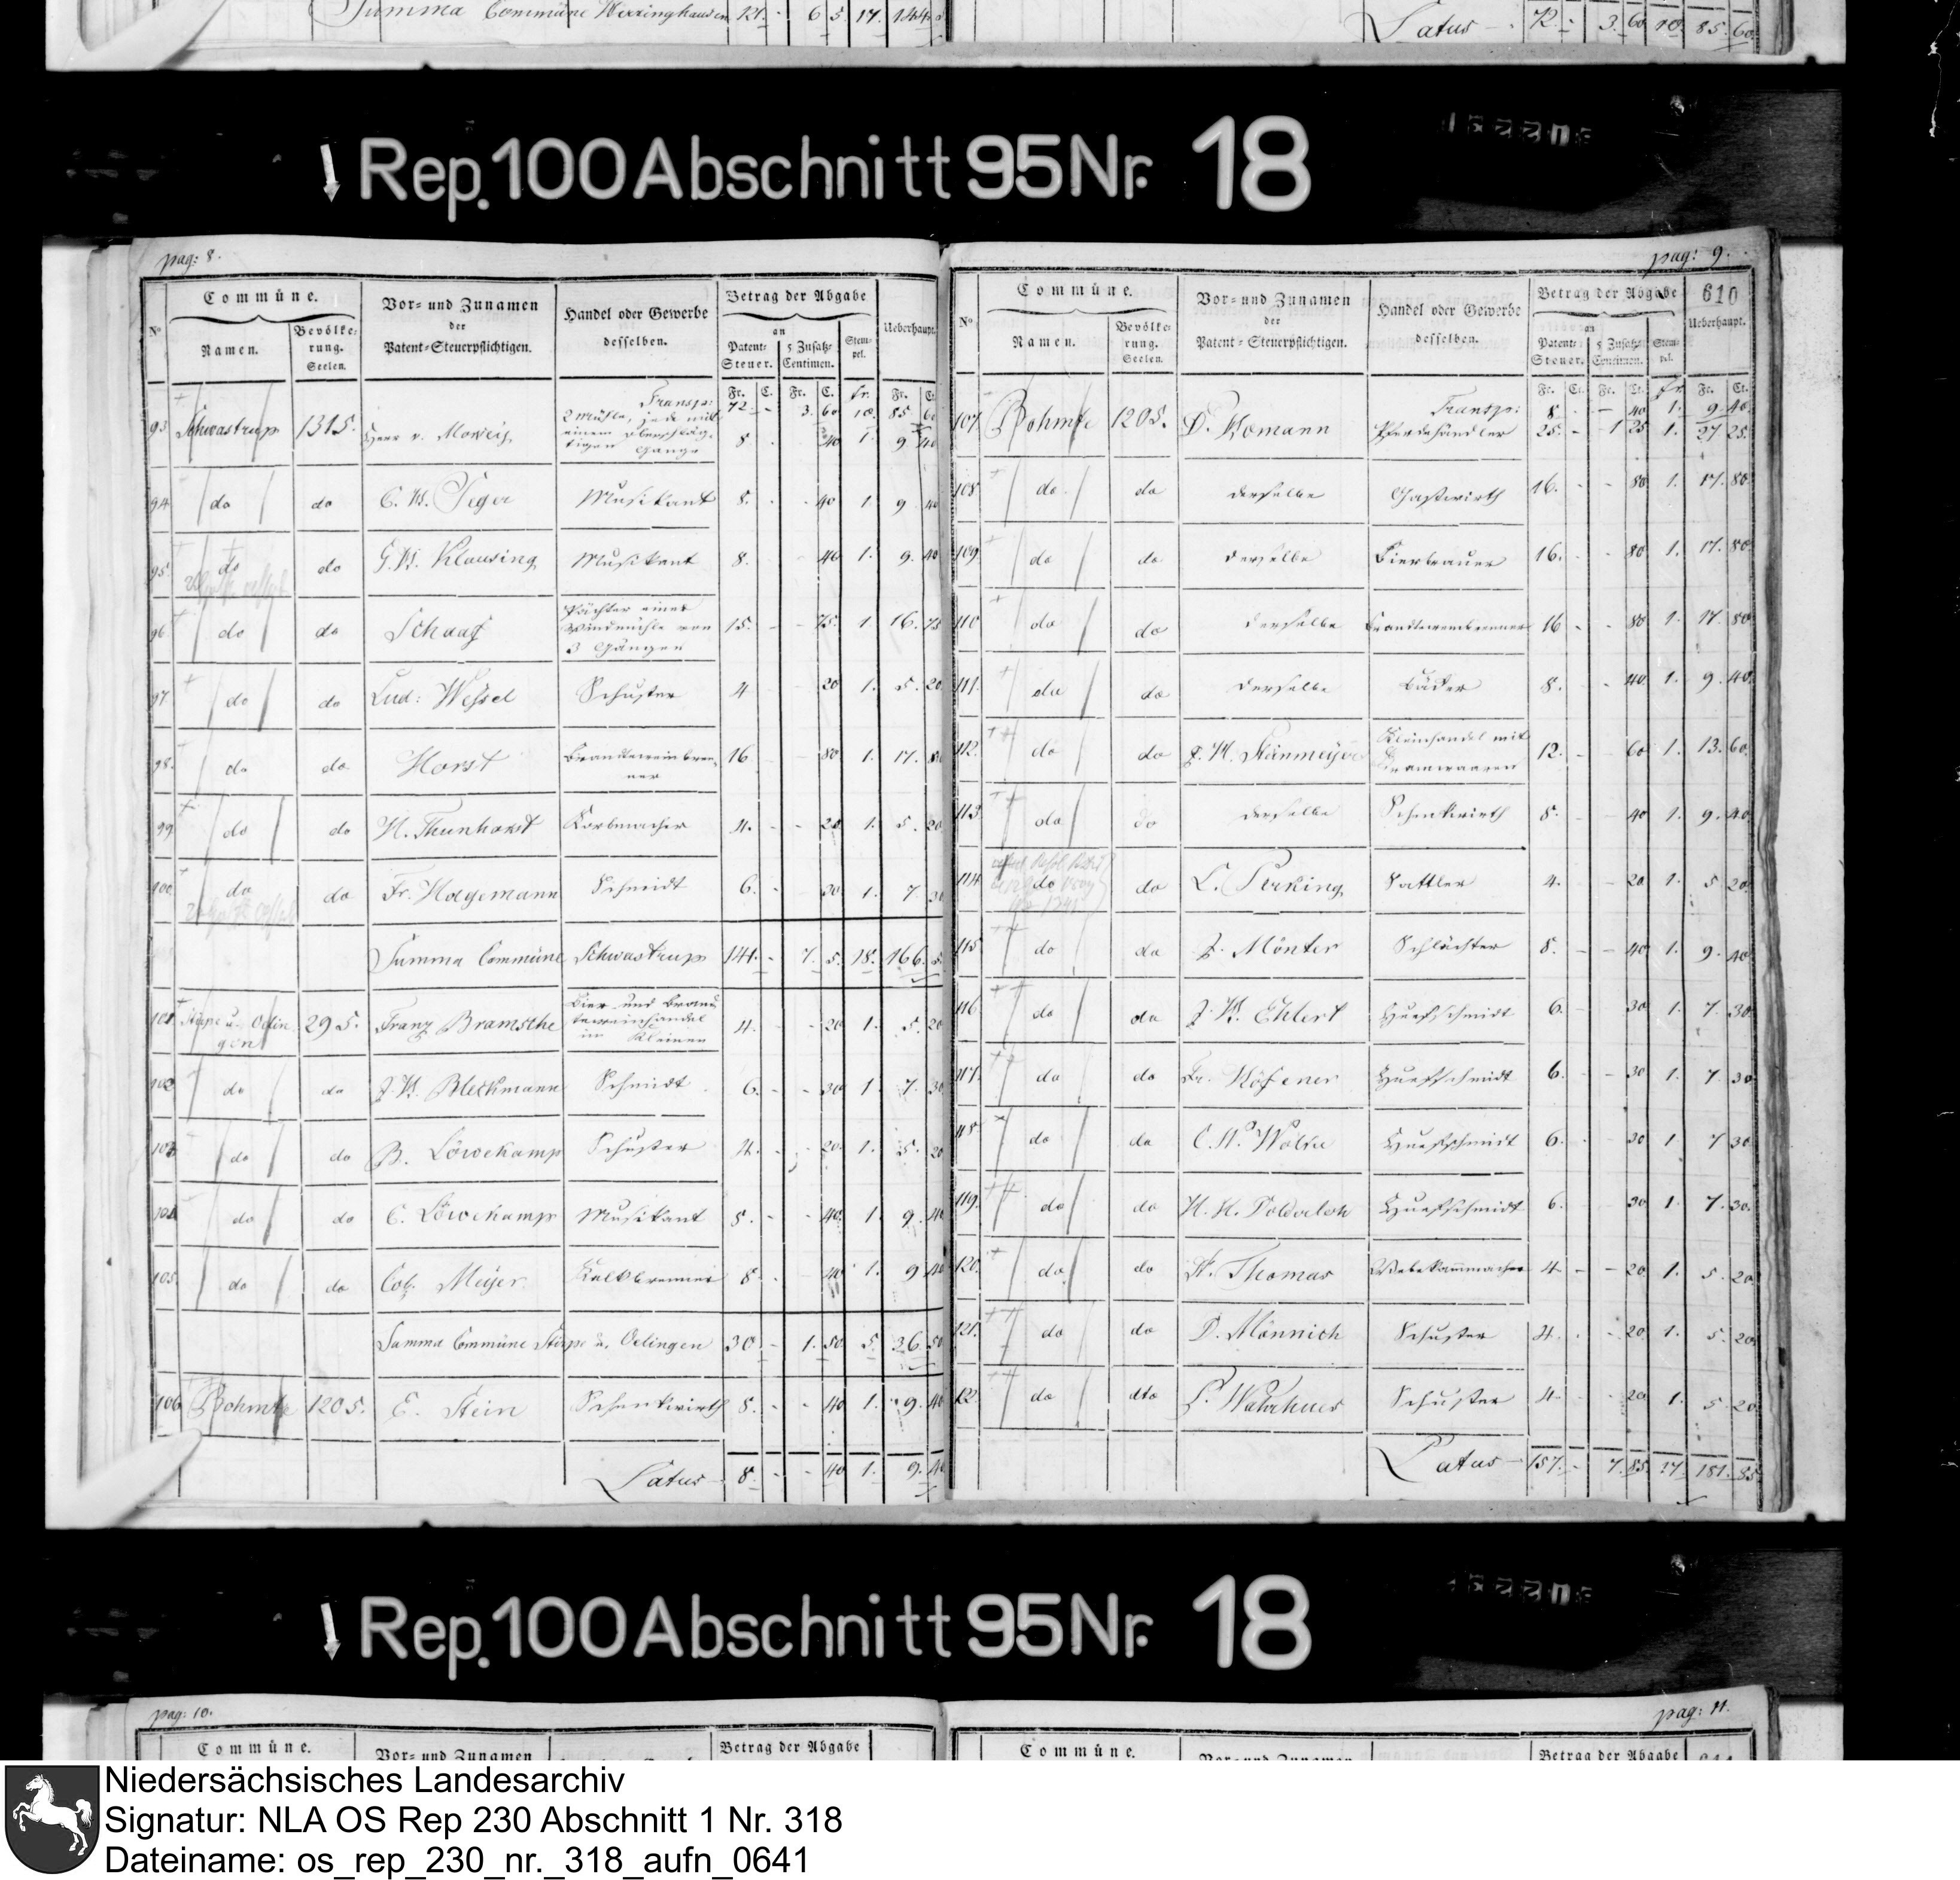 Summa Commüne Herringhausen 121. - 6 5. 17. 144. 5
Latus - 72 - 3. 60 10. 85. 60
Rep. 100 Abschnitt 95 Nr. 18
pag: 8.
Nº Commüne. Vor= und Zunamen der Patent=Steuerpflichtigen. Handel oder Gewerbe desselben. Betrag der Abgabe Ueberhaupt.
Namen. Bevölke=rung. Seelen. an Patent=Steuer. 5 Zusatz=Centimen. Stem=pel.
Fr. C. Fr. C. fr. Fr. Ct.
Transp: 72. - 3. 60 10. 85. 60
93 Schwastrup 1315. Herr v. Morsey 2 Mühle, jede mit einem oberschläg=tigen Gange 8 . 40 1. 9 40
94 do do C. W. Jeger Musikant 8. - 40 1. 9 40
95 do do G. W. Klausing Musikant 8. 40 1. 9. 40
96 do do Schaaf Pächter einer Windmühle von 3 Gängen 15. - 75. 1. 16. 75
97 do do Lud: Wessel Schuster 4 20 1. 5. 20
98. do do Horst Brandtweinbren=ner 16 80 1. 17. 80
99 do do H. Thunhorst Korbmacher 4. - 20 1. 5. 20
100 do do Fr. Hagemann Schmidt 6. - 30 1. 7. 30
Summa Commüne Schwastrup 141. - 7. 5. 18. 166. 5
101 Stirpe u. Oelingen 295. Franz Bramsche Bier und Brandtweinhandel im Kleinen 4. - 20 1. 5. 20
102 do do J. W. Bleckmann Schmidt 6. - 30 1. 7. 30
103 do do B. Löwekamp Schuster 4. - 20. 1. 5. 20
104 do do C. Löwekamp Musikant 8. - 40. 1. 9. 40
105. do do Cob. Meyer Kalkbrenner 8. 40 1. 9 40
Summa Commüne Stirpe u. Oelingen 30 - 1. 50. 5. 36. 50
106 Bohmte 1205. E. Stein Schenkwirth 8. - - 40 1. 9. 40
Latus - 8. - - 40 1. 9. 40
pag: 9.
610
Nº Commüne. Vor= und Zunamen der Patent=Steuerpflichtigen. Handel oder Gewerbe desselben. Betrag der Abgabe Ueberhaupt.
Namen. Bevölke=rung. Seelen. an Patent=Steuer. 5 Zusatz=Centimen. Stem=pel.
Fr. Ct. Fr. Ct. fr Fr. Ct.
Transp: 8. - - 40 1. 9. 40
107 Bohmte 1205. D. Homann Pferdehändler 25. - 1 25 1. 27 25
108 do. do derselbe Gastwirth 16. - - 80 1. 17. 80
109 do do derselbe Bierbrauer 16. - - 80 1. 17. 80
110 do do derselbe Brandtweinbrenner 16 - - 80 1. 17. 80
111. do do derselbe Bäcker 8. - 40. 1. 9. 40
112. do do J. H. Steinmeyer Kleinhandel mit Kramwaaren 12. - 60 1. 13. 60
113 do do derselbe Schenkwirth 8. 40 1. 9. 40
114 do do L. Perking Sattler 4. - - 20 1. 5 20
115 do do J. Mönter Schlächter 8. - - 40 1. 9. 40
116 do do J. W. Ehlert Huefschmidt 6. 30 1. 7. 30
117. do do Fr. Köfener Huefschmidt 6. - 30 1. 7. 30
118. do do C. W. Wolke Huefschmidt 6. 30 1. 7 30
119. do do H. H. Huefschmidt 6. 30 1. 7. 30.
120. do do H. Thomas Webekammmacher 4 - - 20. 1. 5. 20
121. do do D. Mönnich Schuster 4. - 20 1. 5. 20
122. do dto Schuster 4. 20 1. 5. 20
Latus - 157. - 7. 85. 17. 181. 85
Rep. 100 Abschnitt 95 Nr. 18
pag: 10.
Commüne. Vor= und Zunamen Betrag der Abgabe
pag: 11.
Commüne. Betrag der Abgabe
Niedersächsisches Landesarchiv
Signatur: NLA OS Rep 230 Abschnitt 1 Nr. 318
Dateiname: os_rep_230_nr._318_aufn_0641